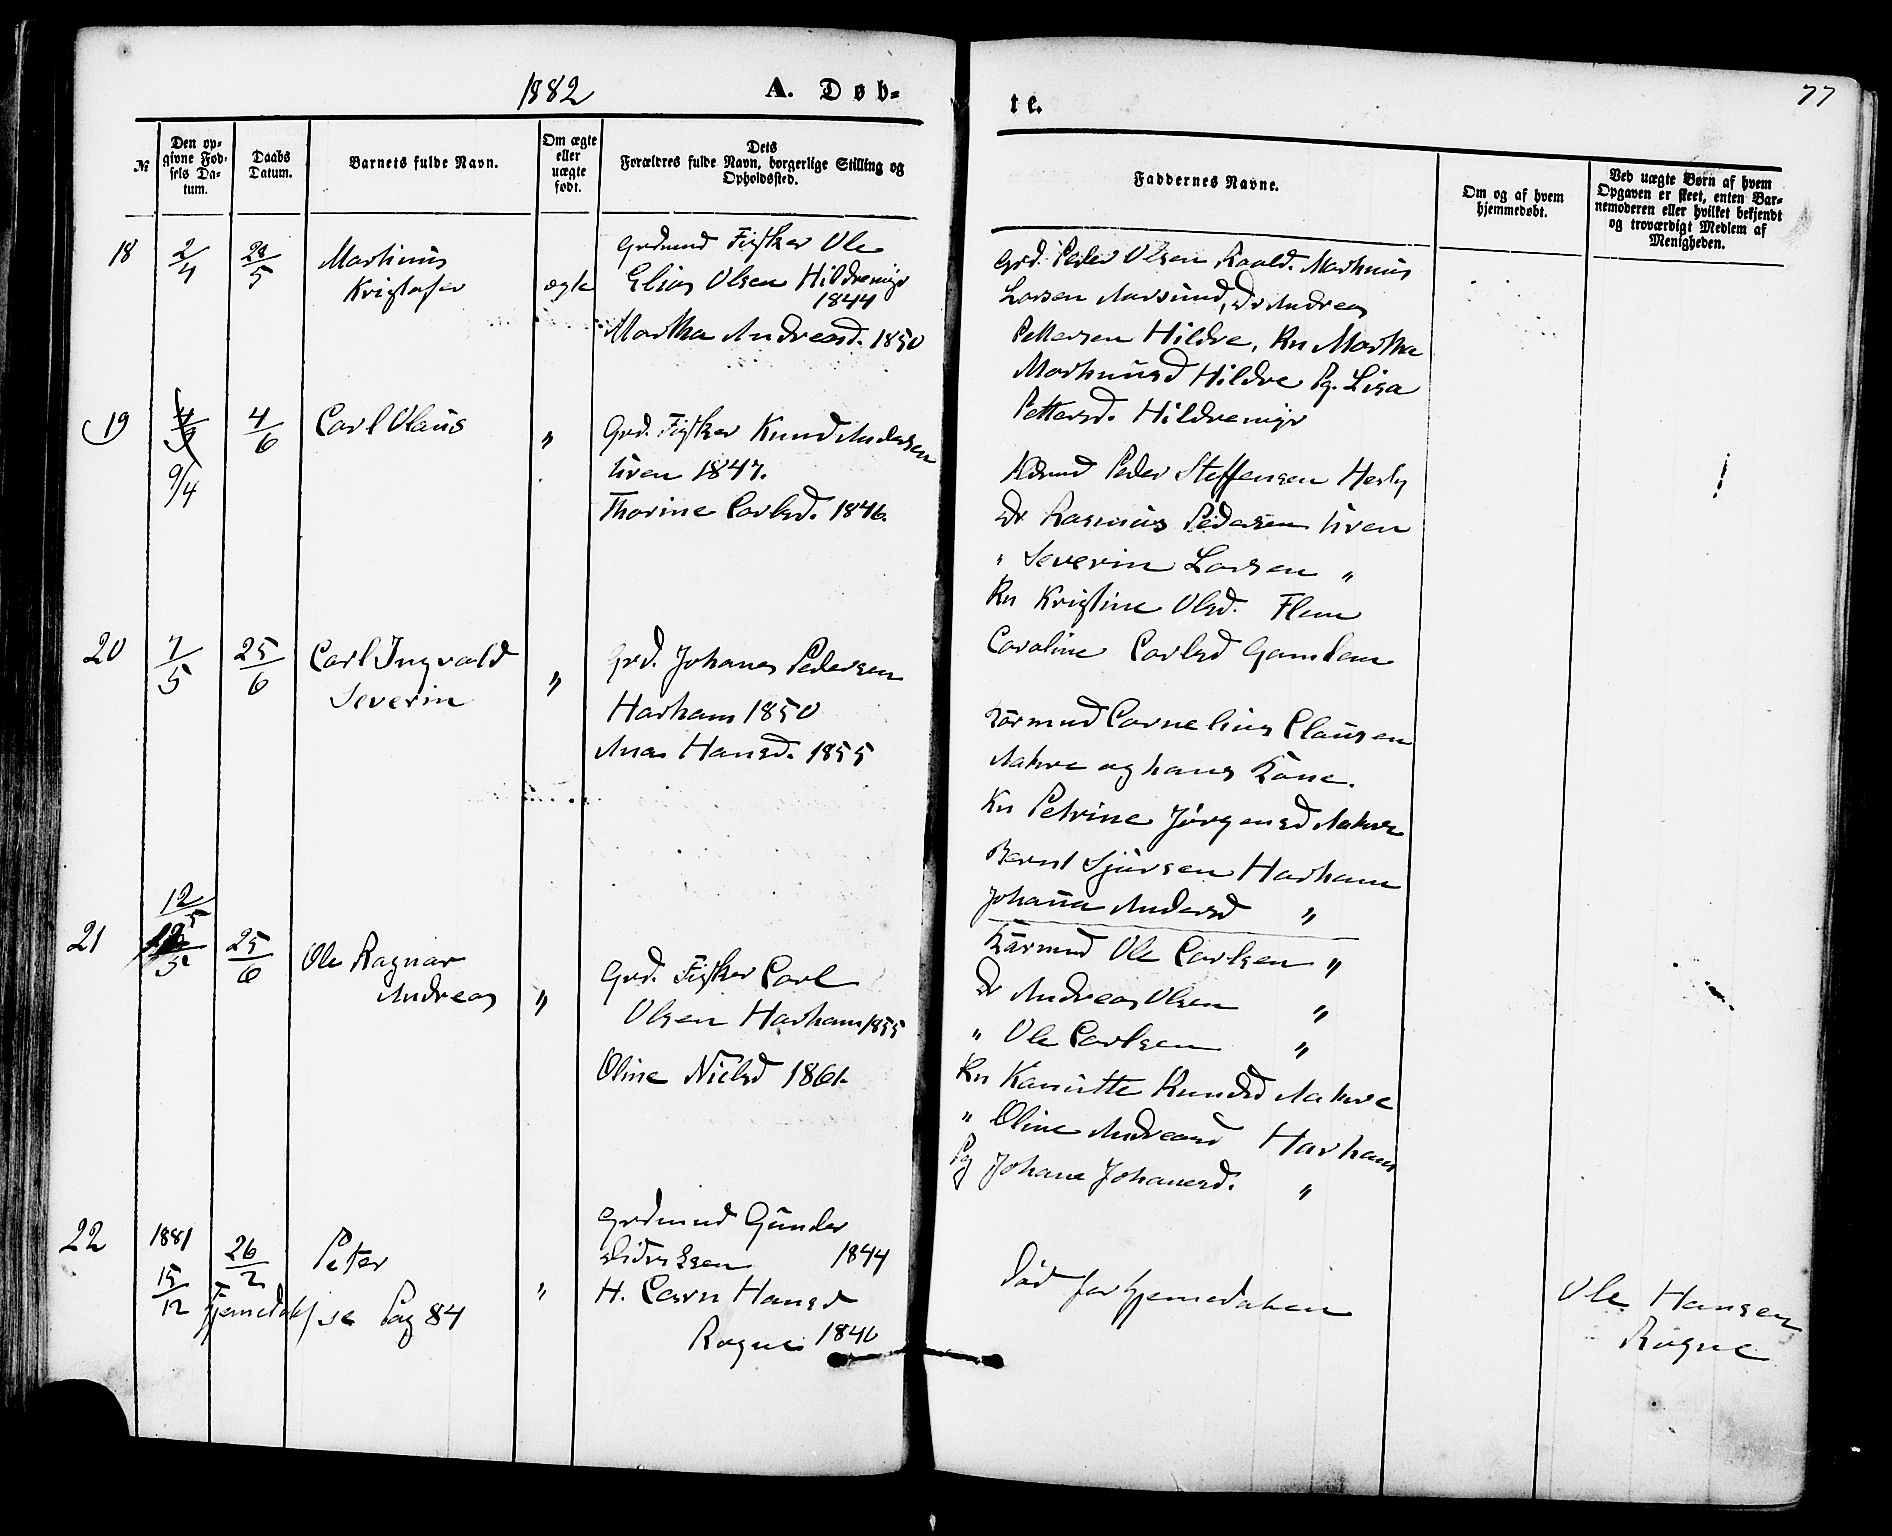 1882 A. Døb-
te. 77
№
Den op-
givne Fød-
sels Da-
tum.
Daabs
Datum.
Barnets fulde Navn.
Om ægte
eller
uægte
født.
Dets
Forældres fulde Navn, borgerlige Stilling og
Opholdssted.
Faddernes Navne.
Om og af hvem
hjemmedøbt.
Ved uægte Børn af hvem
Opgaven er skeet, enten Bar-
nemoderen eller hvilket bekjendt
og troværdigt Medlem af
Menigheden.
18 2/4 28/5 Martinus
Kristofer
ægte
Grdmnd Fisker Ole
Elias Olsen Hildremyr
1844
Martha Andreasd. 1850
Grd. Peder Olsen Roald. Martinus
Larsen Aarsund, Dr Andreas
Pettersen Hildre, Kn Martha
Martinusd Hildre Pg. Lisa
Pettersd. Hildremyr
19 4/5 9/4 4/6 Carl Olaus
"
Grd. Fisker Knud Andersen
Uren 1847.
Thorine Carlsd. 1846.
Peder Steffensen Hesly
Dr Rasmus Pedersen Uren
" Severin Larsen "
Kn Kristine Olsd. Flem
Caroline Carlsd Gamlem
20 7/5 25/6 Carl Ingvald
Severin
"
Grd. Johanes Pedersen
Harham 1850
Ana Hansd. 1855
Kårmnd Cornelius Clausen
Aakre og hans Kone.
Kn Petrine Jørgensd Aakre
Bernt Sjursen Harham
Johanna Andersd "
21 12/5 25/6 Ole Ragnar
Andreas
"
Grd. Fisker Carl
Olsen Harham 1855
Oline Nielsd 1861.
Kårmnd Ole Carlsen "
Dr Andreas Olsen "
" Ole Carlsen "
Kn Knudsd Aakre
" Oline Andreasd Harham
Pg Johane Johanesd. "
22 1881
15/12 26/2 Peter
Hjemedøbt/se Pag 84
"
Grdmnd Gunder
Didriksen 1844
H. Hansd
Rogne 1840
Død før
Ole Hansen
Rogne